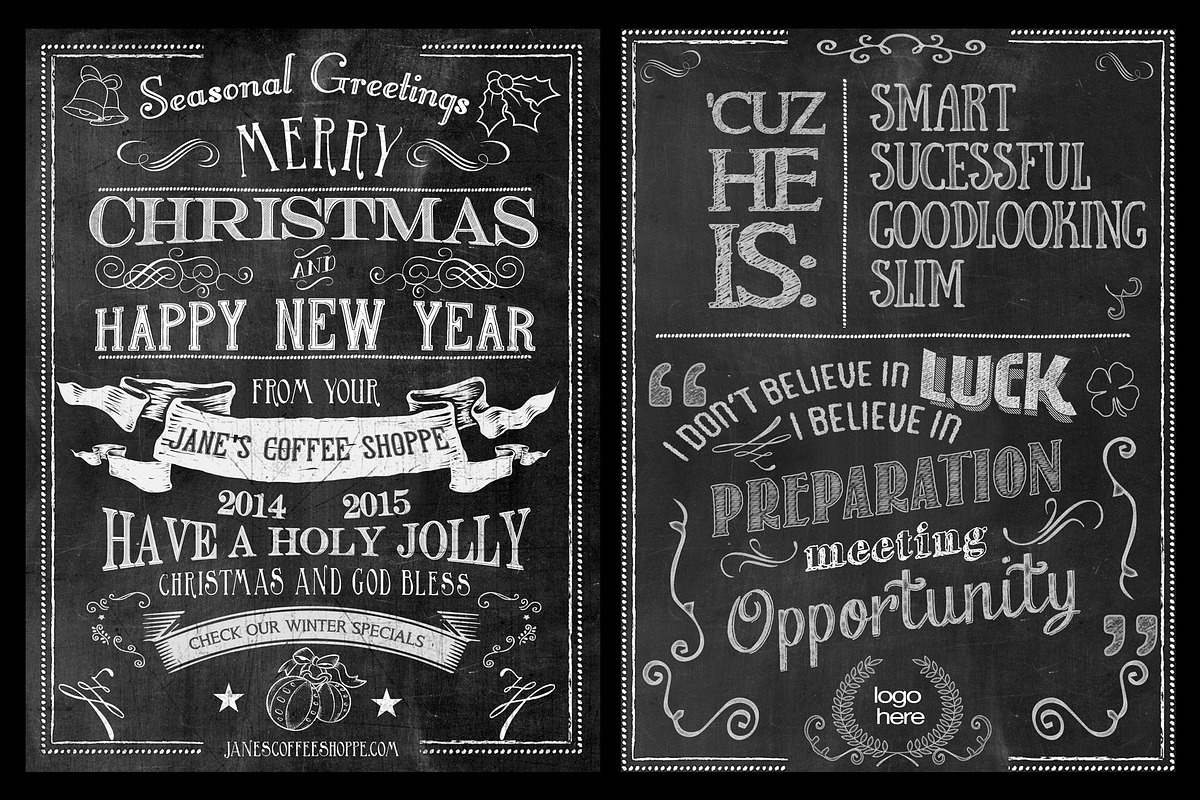 Seasonal Greetings
MERRY
CHRISTMAS
AND
HAPPY NEW YEAR
FROM YOUR
JANE'S COFFEE SHOPPE
2014 2015
HAVE A HOLY JOLLY
CHRISTMAS AND GOD BLESS
CHECK OUR WINTER SPECIALS
JANESCOFFEESHOPPE.COM
'CUZ
HE
IS:
SMART
SUCESSFUL
GOODLOOKING
SLIM
“I DON'T BELIEVE IN LUCK
I BELIEVE IN
PREPARATION
meeting
Opportunity”
logo
here